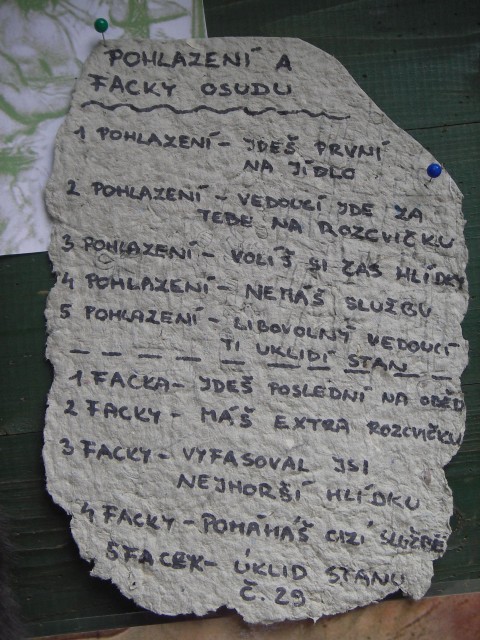 POHLAZENÍ A
FACKY OSUDU
1 POHLAZENÍ - JDEŠ PRVNÍ
NA JÍDLO
2 POHLAZENÍ - VEDOUCÍ JDE ZA
TEBE NA ROZCVIČKU
3 POHLAZENÍ - VOLÍŠ SI ČAS HLÍDKY
4 POHLAZENÍ - NEMÁŠ SLUŽBU
5 POHLAZENÍ - LIBOVOLNÝ VEDOUCÍ
TI UKLIDÍ STAN
1 FACKA - JDEŠ POSLEDNÍ NA OBĚD
2 FACKY - MÁŠ EXTRA ROZCVIČKU
3 FACKY - VYFASOVAL JSI
NEJHORŠÍ HLÍDKU
4 FACKY - POMÁHÁŠ CIZÍ SLUŽBĚ
5 FACEK - ÚKLID STANU
Č. 29